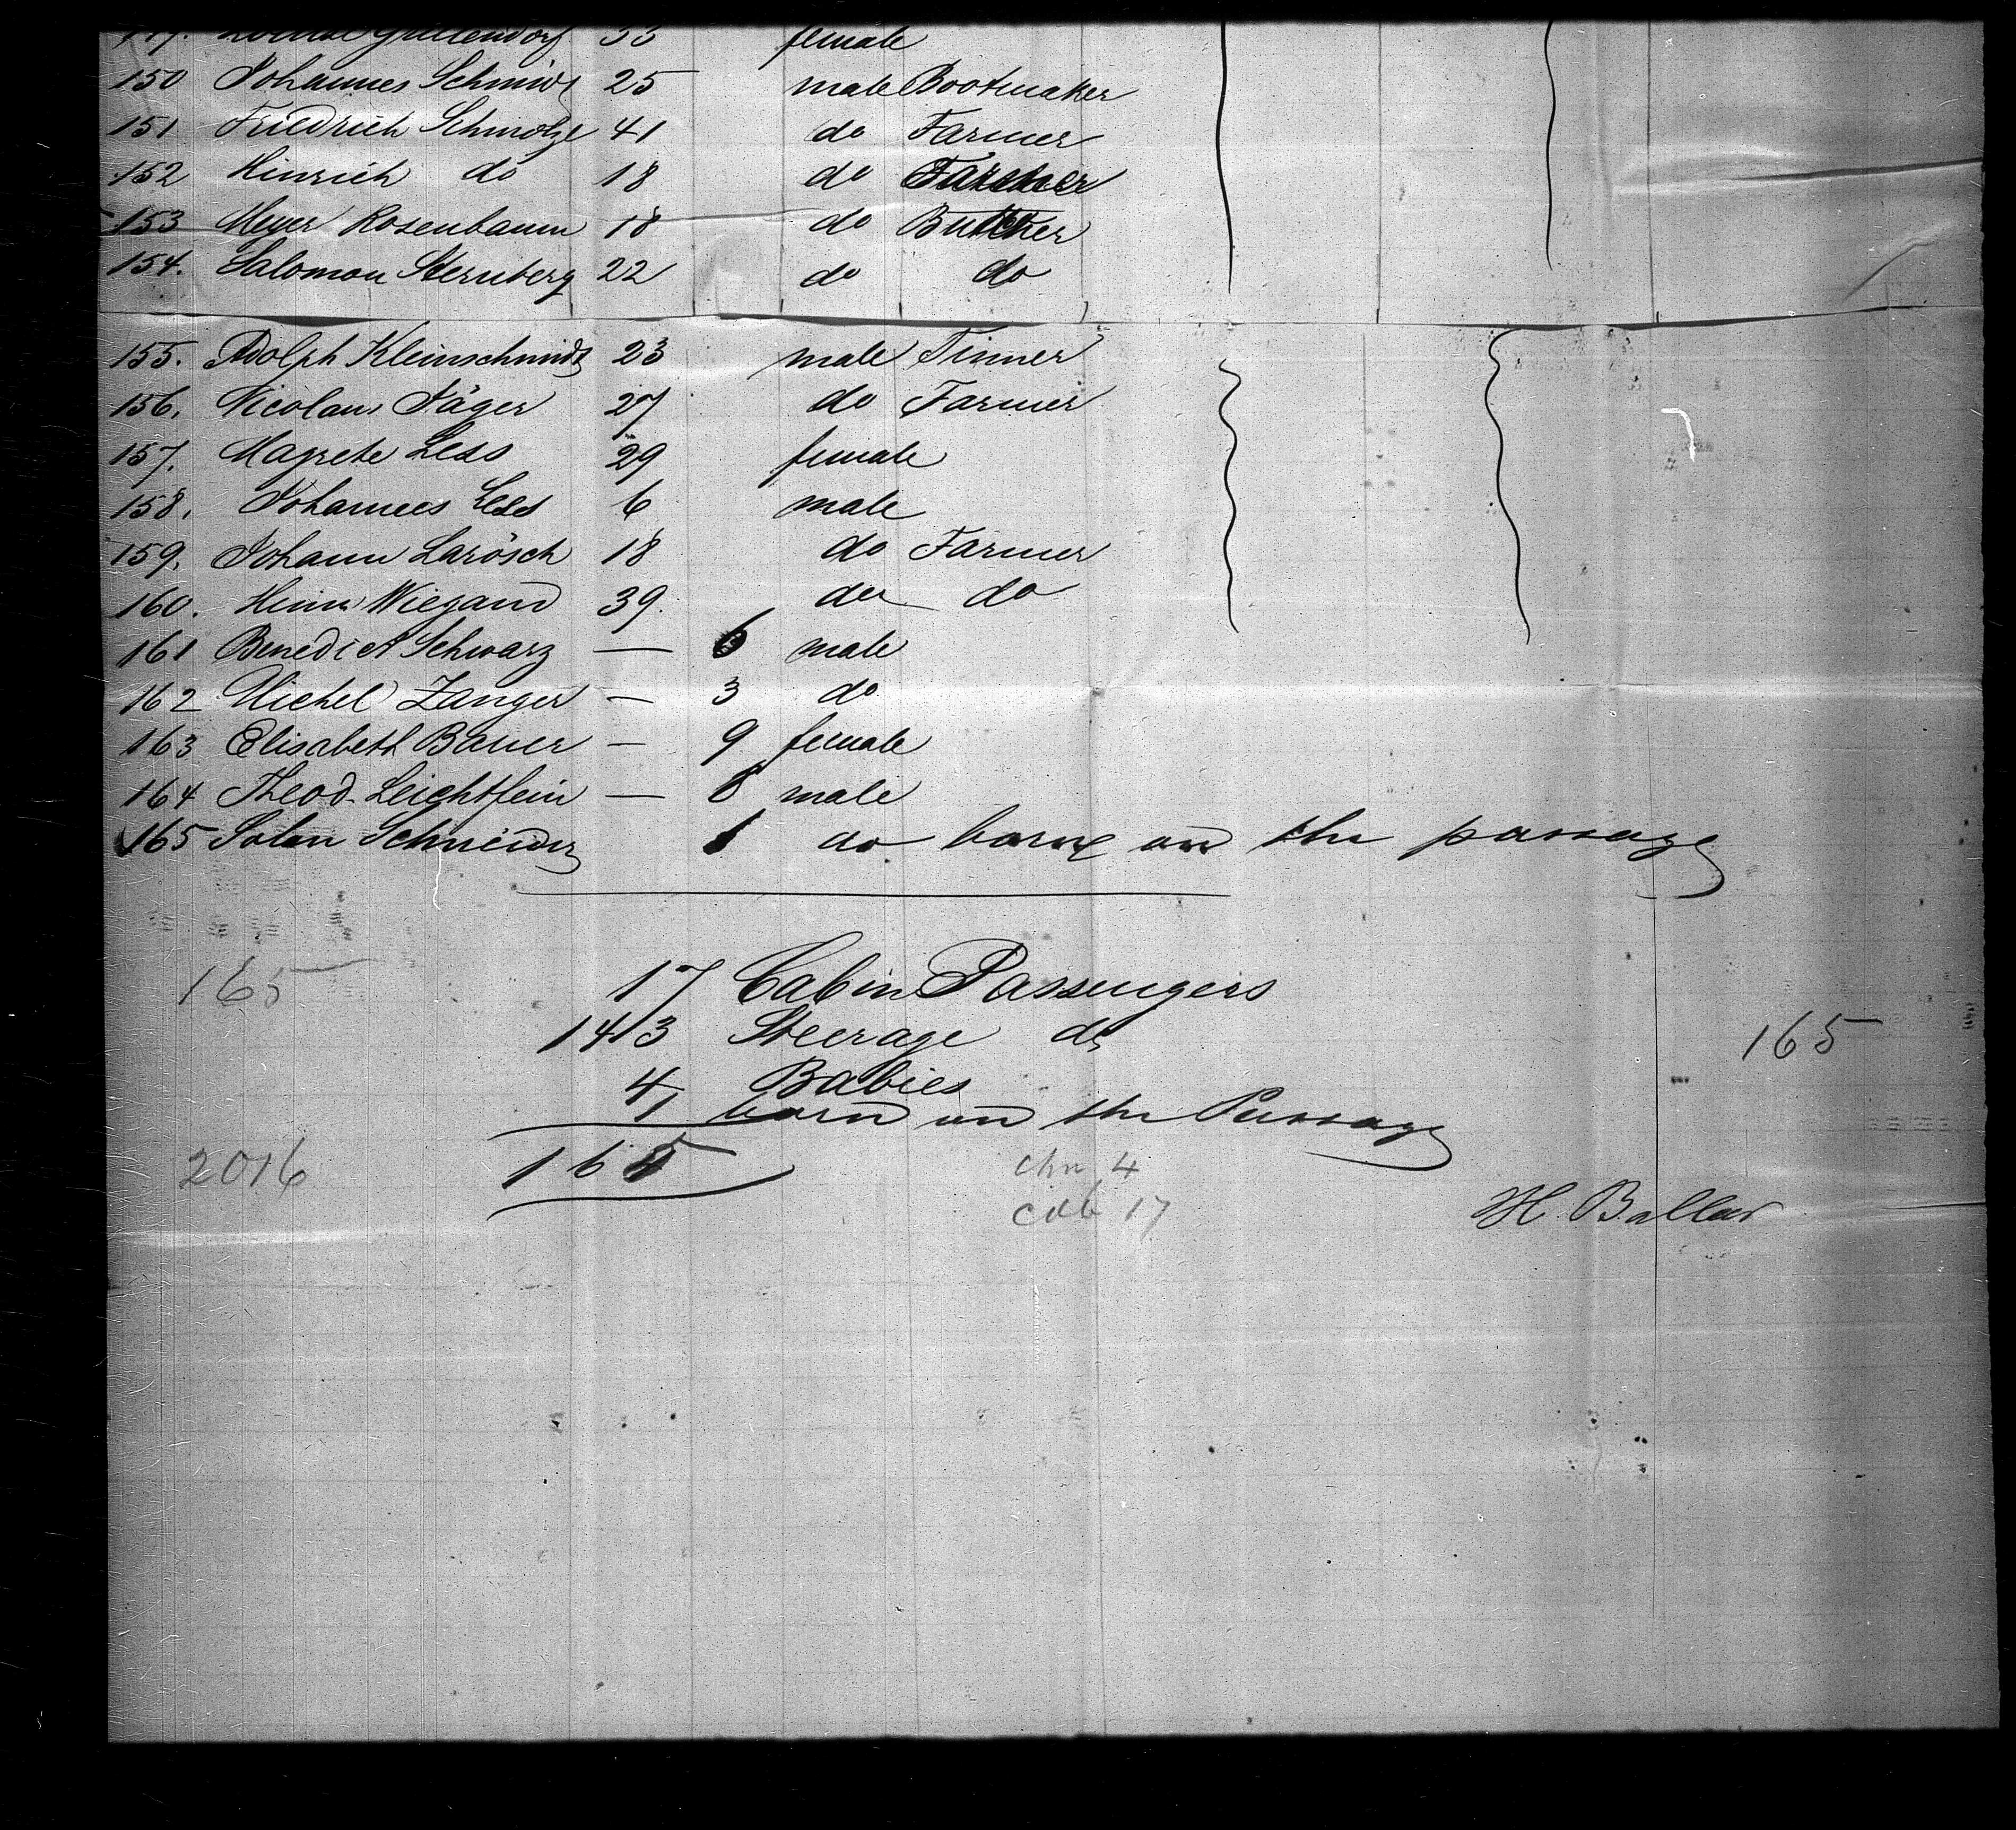 female
150 Johannes Schmidt 25 male Bootmaker
151 Friedrich Schmolze 41 do Farmer
152 Hinrich do 18 do
153 Meyer Rosenbaum 18 do Butcher
154. Salomon Sternberg 22 do do
155. Adolph Kleinschmidt 23 male Tinner
156. Nicolaus Jäger 27 do Farmer
157. Magrete Less 29 female
158. Johannes Less 6 male
159. Johann Larösch 18 do Farmer
160. Heinr Wiegand 39. do do
161 Benedict Schwarz — 6 male
162 Michel Zanger — 3 do
163 Elisabeth Bauer — 9 female
164 Theod. Leichtfein — 8 male
165 Schneider 1 do born on the passage
165 17 Cabin Passengers
143 Steerage do 165
4 Babies
1 born on the Passage
2016 165 chn 4
cab 17
H.